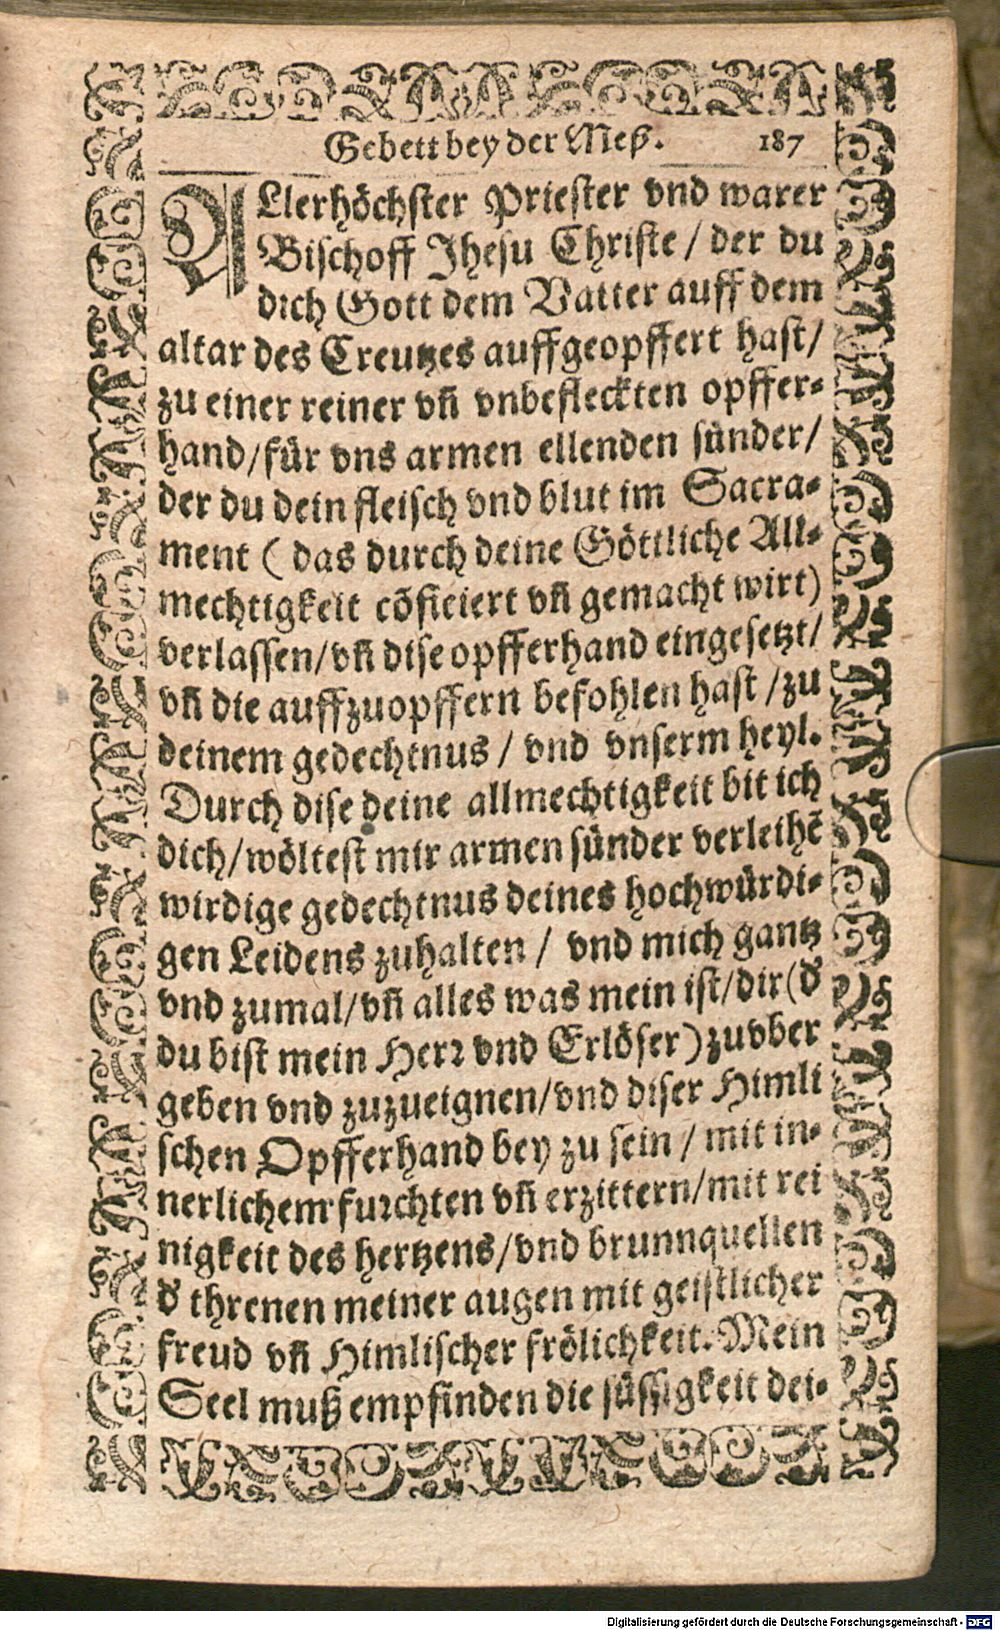 Gebett bey der Meß. 187
ALlerhöchster Priester vnd warer
Bischoff Jhesu Christe / der du
dich Gott dem Vatter auff dem
altar des Creutzes auffgeopffert hast/
zu einer reiner vñ vnbefleckten opffer⸗
hand/für vns armen ellenden sünder/
der du dein fleisch vnd blut im Sacra⸗
ment ( das durch deine Göttliche All⸗
mechtigkeit cõficiert vñ gemacht wirt)
verlassen/vñ dise opfferhand eingesetzt/
vñ die auffzuopffern befohlen hast /zu
deinem gedechtnus / vnd vnserm heyl.
Durch dise deine allmechtigkeit bit ich
dich/wöltest mir armen sünder verleihẽ
wirdige gedechtnus deines hochwürdi⸗
gen Leidens zuhalten / vnd mich gantz
vnd zumal/vñ alles was mein ist/dir(d̕
du bist mein Herꝛ vnd Erlöser)zuvber
geben vnd zuzueignen/vnd diser Himli
schen Opfferhand bey zu sein / mit in⸗
nerlichem fuꝛchten vñ erzittern/mit rei
nigkeit des hertzens/vnd brunnquellen
d̕ threnen meiner augen mit geistlicher
freud vñ Himlischer frölichkeit. Mein
Seel muß empfinden die süssigkeit dei⸗
Digitalisierung gefördert durch die Deutsche Forschungsgemeinschaft - DFG